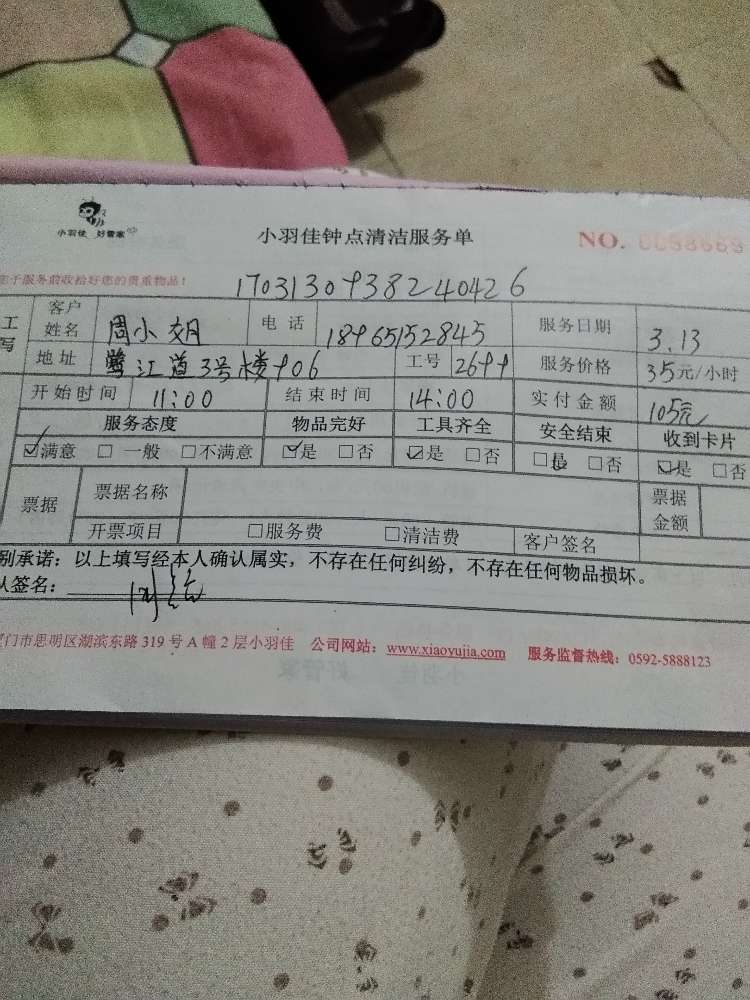 小羽佳 好管家
小羽佳钟点清洁服务单
NO. 0058669
于服务前收拾好您的贵重物品!
1703130938240426
工 客户姓名 周小姐 电话 18965152845 服务日期 3.13
写 地址 鹭江道3号楼906 工号 2699 服务价格 35元/小时
开始时间 11:00 结束时间 14:00 实付金额 105元
服务态度 物品完好 工具齐全 安全结束 收到卡片
☑满意 □一般 □不满意 ☑是 □否 ☑是 □否 □是 □否 ☑是 □否
票据 票据名称 票据金额
开票项目 □服务费 □清洁费 客户签名
别承诺：以上填写经本人确认属实，不存在任何纠纷，不存在任何物品损坏。
人签名：
门市思明区湖滨东路 319 号 A 幢 2 层小羽佳 公司网站：www.xiaoyujia.com 服务监督热线：0592-5888123